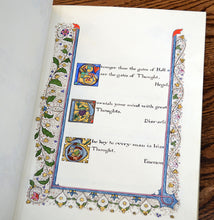 Stronger than the gates of Hell
are the gates of Thought.
Hegel
Nourish your mind with great
Thoughts.
Disraeli
The key to every man is his
Thought.
Emerson